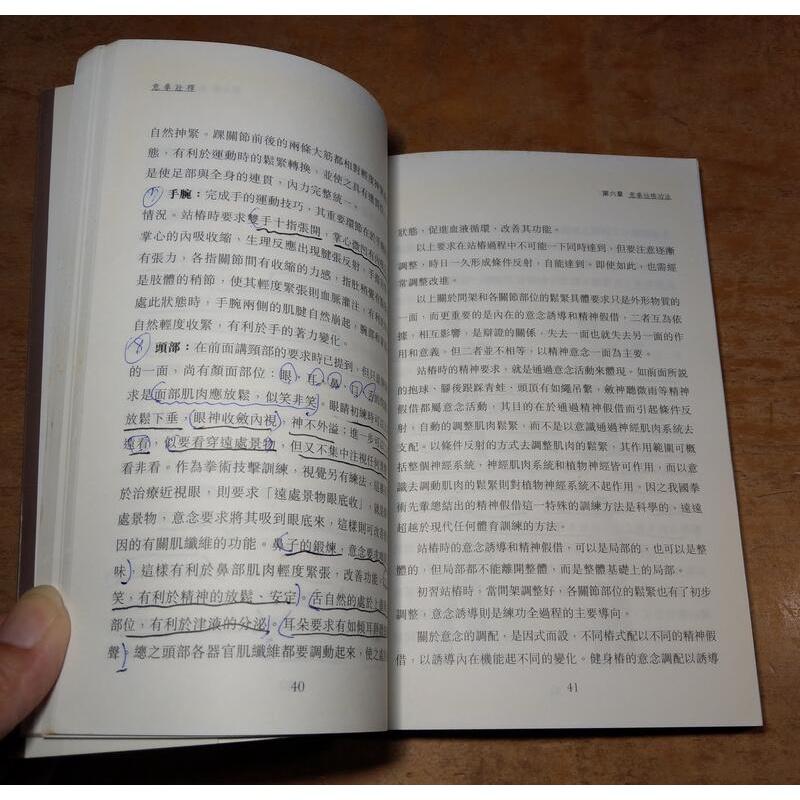 意拳詮釋
自然抻緊。踝關節前後的兩條大筋都相對輕度
態，有利於運動時的鬆緊轉換，並使之具有
是使足部與全身的連貫，內力完整統一。
手腕：完成手的運動技巧，其重要環節在於手
情況。站樁時要求雙手十指張開，掌心微凹
掌心的內吸收縮、生理反應出現腱張反射，手
有張力，各指關節間有收縮的力感，指肚稍
是肢體的稍節，使其輕度緊張則血脈灌注，有利
處此狀態時，手腕兩側的肌腱自然崩起，腕部和
自然輕度收緊，有利於手的著力變化。
8 頭部：在前面講頸部的要求時已提到，但只
的一面，尚有顏面部位：眼、耳、鼻、口、舌
求是面部肌肉應放鬆，似笑非笑。眼睛初練時可
放鬆下垂，眼神收斂內視，神不外溢；進一步可
遠看，似要看穿遠處景物，但又不集中注視任何
看非看。作為拳術技擊訓練，視覺另有練法，這
於治療近視眼，則要求「遠處景物眼底收」，就
處景物，意念要求將其吸到眼底來，這樣則可改
因的有關肌纖維的功能。鼻子的鍛煉，意念要求
味，這樣有利於鼻部肌肉輕度緊張，改善功能。
笑，有利於精神的放鬆、安定。舌自然的處於上
部位，有利於津液的分泌。耳朵要求有如傾耳
聲。總之頭部各器官肌纖維都要調動起來，使之
40
第六章 意拳站樁功法
狀態，促進血液循環，改善其功能。
以上要求在站樁過程中不可能一下同時達到，但要注意逐漸
調整，時日一久形成條件反射，自能達到。即使如此，也需經
常調整改進。
以上關於間架和各關節部位的鬆緊具體要求只是外形物質的
一面，而更重要的是內在的意念誘導和精神假借，二者互為依
據，相互影響，是辯證的關係，失去一面也就失去另一面的作
用和意義。但二者並不相等，以精神意念一面為主要。
站樁時的精神要求，就是通過意念活動來體現，如前面所說
的抱球、腳後跟踩青蛙、頭頂有如繩吊繫，斂神聽微雨等精神
假借都屬意念活動，其目的在於通過精神假借而引起條件反
射，自動的調整肌肉鬆緊，而不是以意識通過神經肌肉系統去
支配。以條件反射的方式去調整肌肉的鬆緊，其作用範圍可概
括整個神經系統，神經肌肉系統和植物神經皆可作用，而以意
識去調動肌肉的鬆緊則對植物神經系統不起作用。因之我國拳
術先輩總結出的精神假借這一特殊的訓練方法是科學的，遠遠
超越於現代任何體育訓練的方法。
站樁時的意念誘導和精神假借，可以是局部的，也可以是整
體的，但局部都不能離開整體，而是整體基礎上的局部。
初習站樁時，當間架調整好，各關節部位的鬆緊也有了初步
調整，意念誘導則是練功全過程的主要導向。
關於意念的調配，是因式而設，不同樁式配以不同的精神假
借，以誘導內在機能起不同的變化。健身樁的意念調配以誘導
41